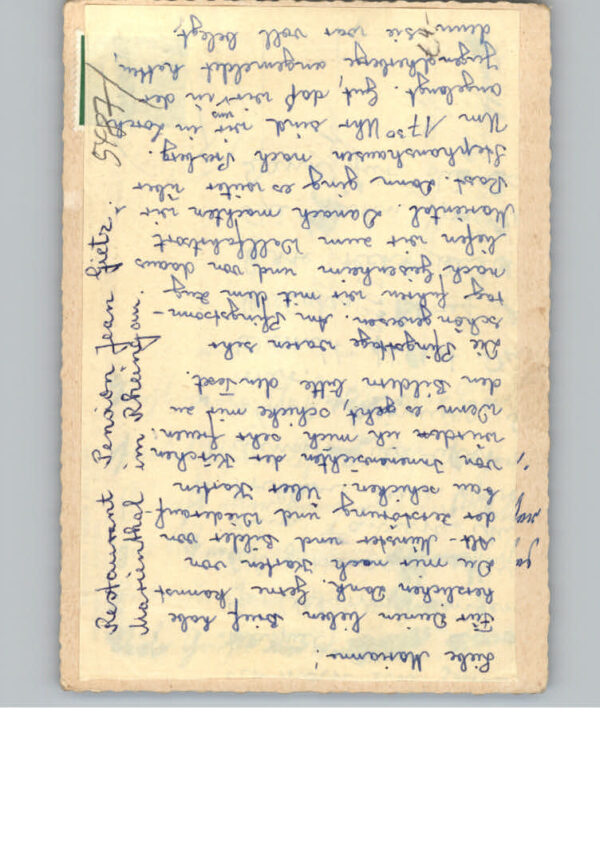 Liebe Marianne!
Für Deinen lieben Brief habe
herzlichen Dank. Gerne kannst
Du mir noch Karten von
Alt-Münster und Bilder von
der Zerstörung und Wiederauf-
bau schicken. Über Karten
von Innenansichten der Kirchen
würden ich mich sehr freuen.
Wenn es geht, schicke mir zu
den Bildern bitte den Text.
Die Pfingsttage waren sehr
schön gewesen. Am Pfingstsonn-
tag fuhren wir mit dem Zug
nach Geisenheim und von daaus
liefen wir zum Wallfahrtsort
Mariental. Danach machten wir
Rast. Dann ging es weiter über
Stephanshausen nach Presberg.
Um 17³⁰ Uhr sind wir in Lorch
angelangt. Gut, daß wir uns in der
Jugendherberge angemeldet hatten,
denn sie war voll belegt
Restaurant Pension Jean Gietz.
Marienthal im Rheingau.
5487/